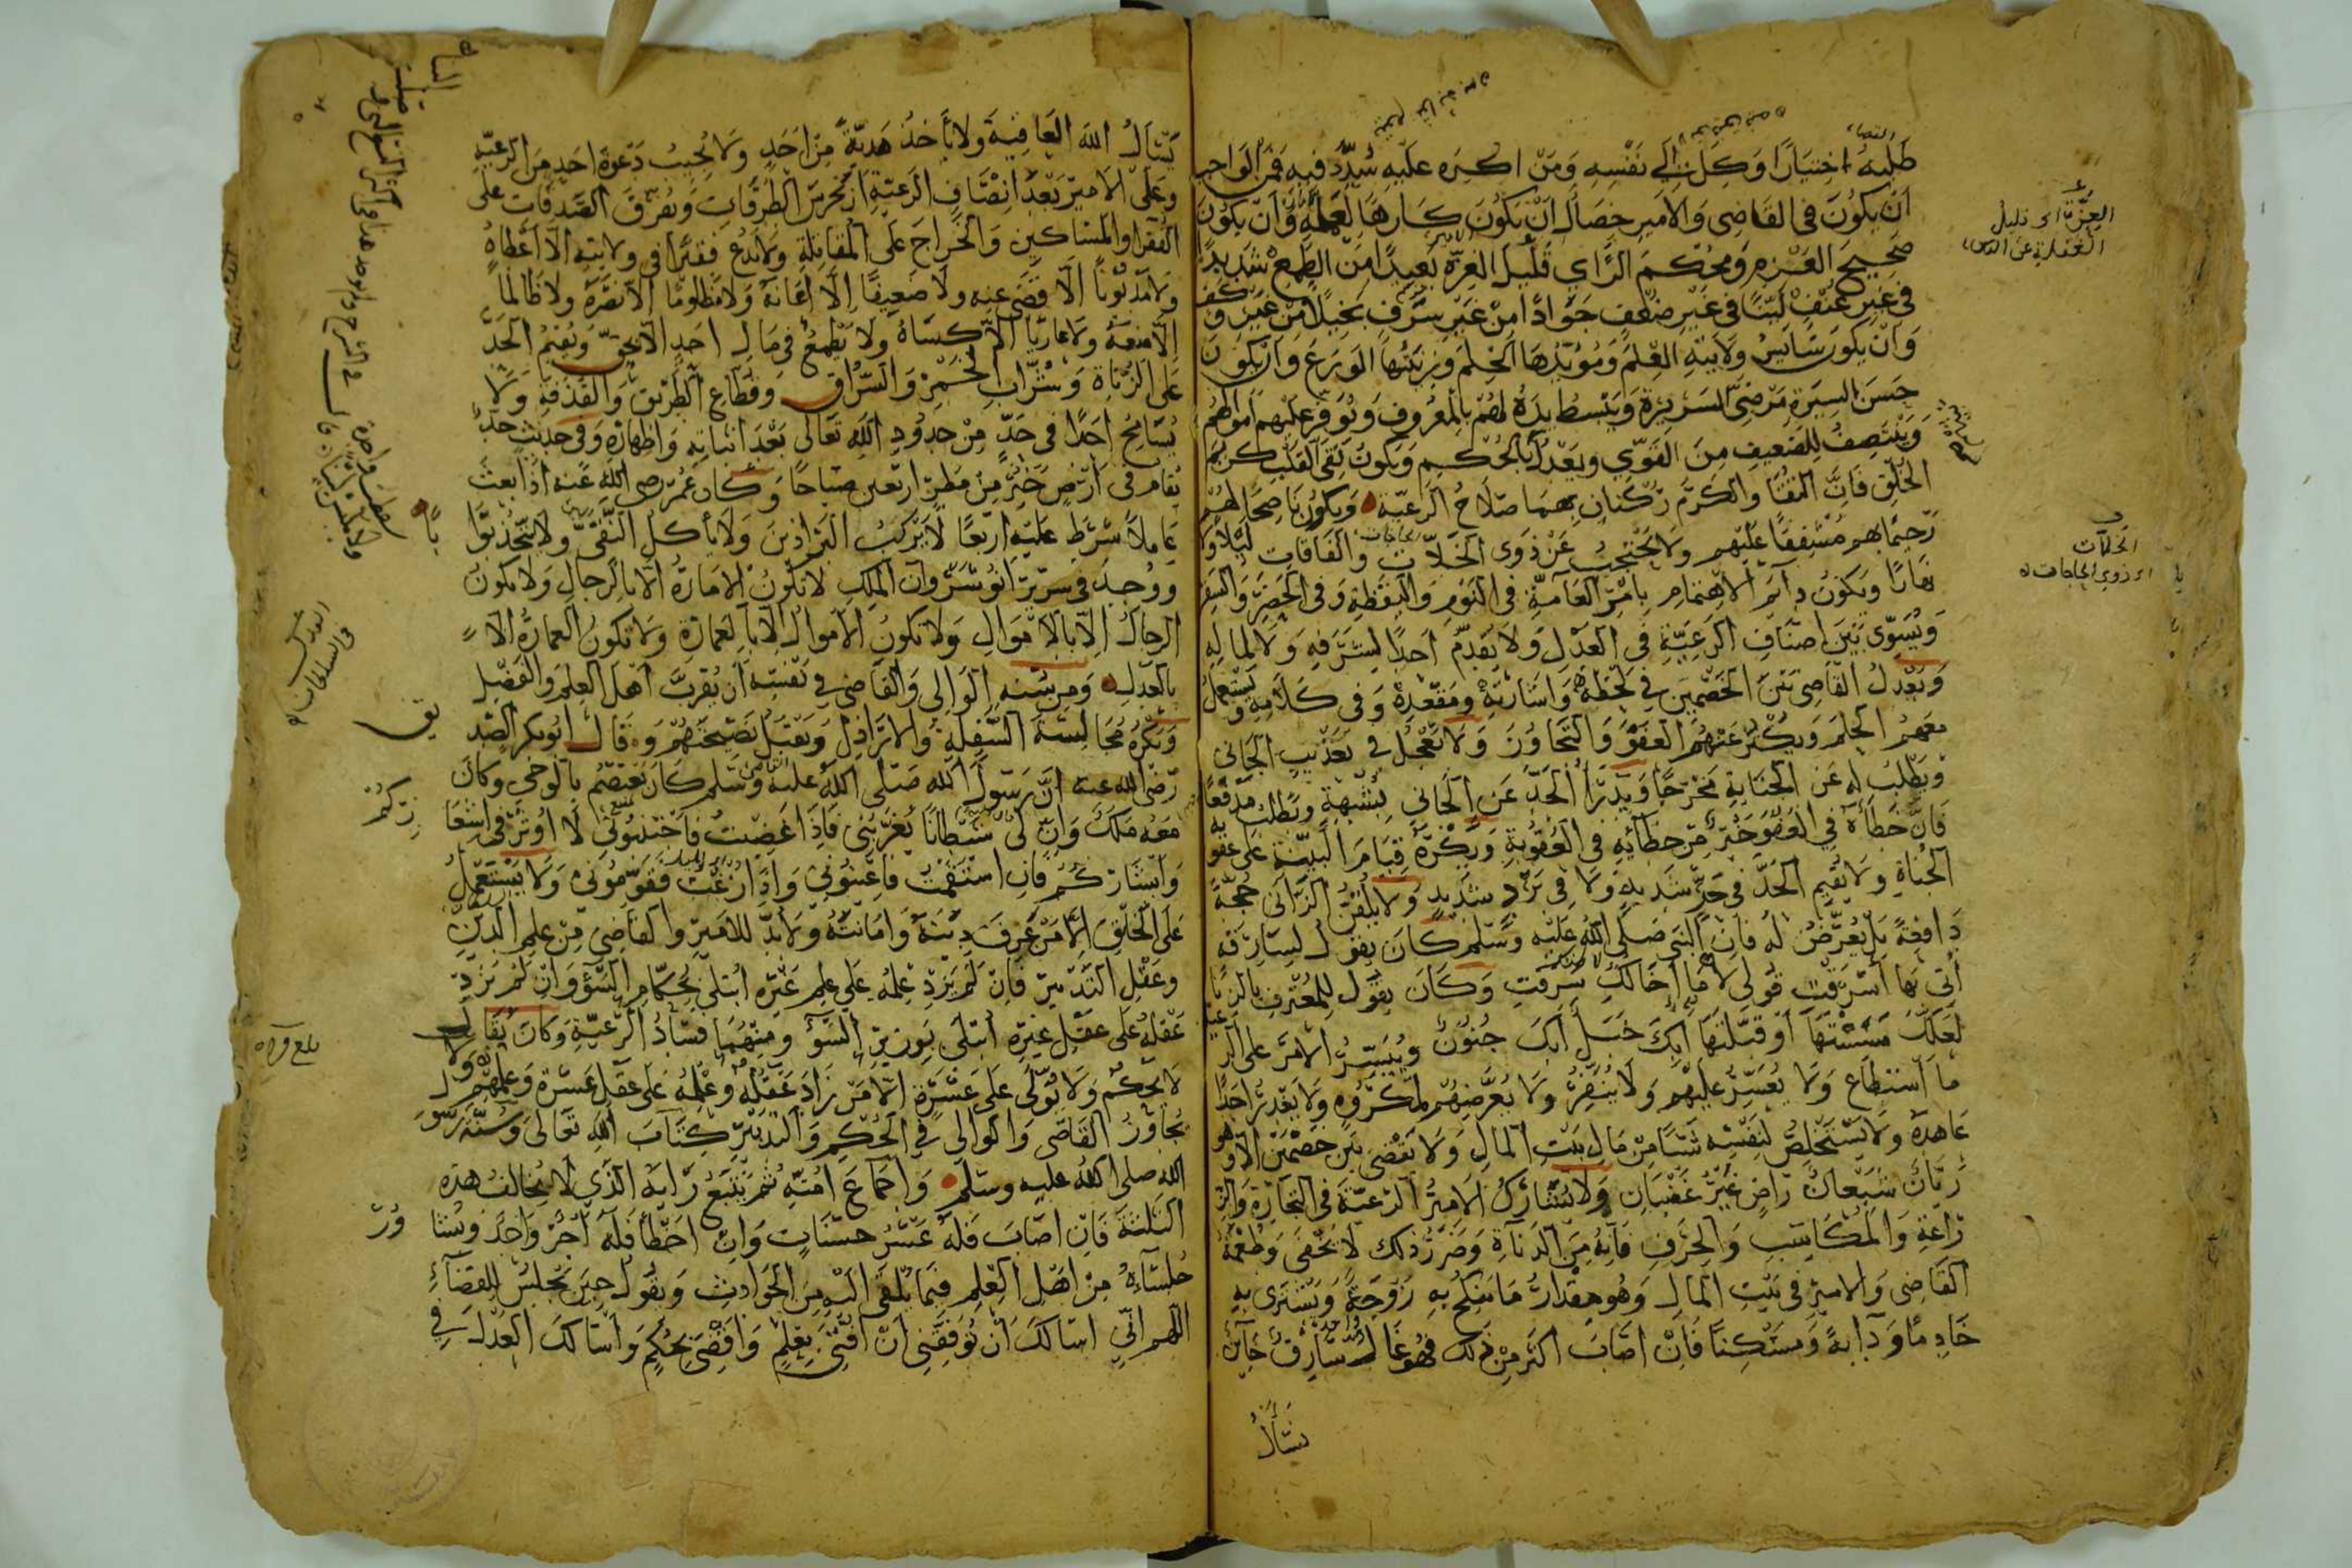 طلبه اختيارا وكل الى نفسه ومن اكره عليه سدد فيه فمن الواجب
ان يكون فى القاضى والامير خصال ان يكون كارها لعمله وان يكون
صحيح العزم ومحكم الراي قليل الغرة بعيدا من الطمع شديدا
فى غير عنف لينا فى غير ضعف جوادا من غير سرف بخيلا من غير وكف
وان يكون سايس ولايته العلم ومؤيدها الحلم وزينتها الورع وان يكون
حسن السيرة مرضى السريرة ويبسط يده لهم بالمعروف ويوفر عليهم اموالهم
وينتصف للضعيف من القوي ويعدل بالحكم ويكون نقى القلب كريم
الخلق فان التقا والكرم ركنان بهما صلاح الرعية ويكون ناصحا لهم
رحيما بهم مشفقا عليهم ولا يحتجب عن ذوى الخلات والفاقات ليلا ولا
نهارا ويكون دائم الاهتمام بامر العامة فى النوم واليقظة وفى الحضر والسفر
ويسوى بين اصناف الرعية فى العدل ولا يقدم احدا لشرفه ولا لماله
ويعدل القاضى بين الخصمين في لحظه واشارته ومقعده وفى كلامه ويستعمل
معهم الحلم ويكثر عنهم العفو والتجاوز ولا يعجل في تعذيب الجانى
ويطلب له عن الجناية مخرجا ويدرأ الحد عن الجاني بشبهة ويطلب مدفعا
فان خطأه في العفو خير من خطائه فى العقوبة ويكره قيام البينة على عقوبة
الجناة ولا يقيم الحد فى حر شديد ولا فى برد شديد ولا يلقن الزانى حجة
دافعة بل يعرض له فان النبى صلى الله عليه وسلم كان يقول لسارقة
اتى بها اسرقت قولى لا ما اخالك سرقت وكان يقول للمعترف بالزنا
لعلك مسستها او قبلتها ابك خبل ابك جنون وييسر الامر على الرعية
ما استطاع ولا يعسر عليهم ولا ينفر ولا يعرضهم لمكروه ولا يغدر احدا
عاهده ولا يستخلص لنفسه شيئا من مال بيت المال ولا يقضى بين خصمين الا وهو
ريان شبعان راض غير غضبان ولا يشارك الامير الرعية فى التجارة والز
راعة والمكاسب والحرف فانه من الدناءة وضرر ذلك لا يخفى وطعمة
القاضى والامير فى بيت المال وهو مقدار ما ينكح به زوجة ويشترى به
خادما ودابة ومسكنا فان اصاب اكثر من ذلك فهو غال سارق خائن
يسأل
الغرة اى قليل
الغفلة عن الدين
الخلات
اى ذوي الحاجات
يسأل الله العافية ولا يأخذ هدية من احد ولا يجيب دعوة احد من الرعية
وعلى الامير بعد انصاف الرعية ان يحرس الطرقات ويفرق الصدقات على
الفقرا والمساكين والخراج على المقاتلة ولا يدع فقيرا فى ولايته الا اعطاه
ولا مديونا الا قضى عنه ولا ضعيفا الا اعانه ولا مظلوما الا نصره ولا ظالما
الا منعه ولا عاريا الا كساه ولا يطمع فى مال احد الا بحق ويقيم الحد
على الزناة وشراب الخمر والسراق وقطاع الطريق والقذفة ولا
يسامح احدا فى حد من حدود الله تعالى بعد اثباته واظهاره وفى حديث حد
يقام فى ارض خير من مطر اربعين صباحا وكان عمر رضى الله عنه اذا بعث
عاملا شرط عليه اربعا لا يركب البراذين ولا يأكل النقى ولا يتخذ بوا
با
ووجد فى سرير انوشروان الملك لا تكون الامارة الا بالرجال ولا يكون
الرجال الا بالاموال ولا تكون الاموال الا بالعمارة ولا تكون العمارة الا
بالعدل ومن سنه الوالى والقاضى في نفسه ان يقرب اهل العلم والفضل
ويكره مجالسة السفلة والاراذل ويقبل نصيحتهم وقال ابو بكر الصد
يق
رضى الله عنه ان رسول الله صلى الله عليه وسلم كان يعتصم بالوحى وكان
معه ملك وان لى شيطانا يغرينى فاذا غضبت فاجتنبونى لا اوثر فى اشعا
ركم
وابشاركم فان استقمت فاعينونى واذا زغت فقومونى ولا يستعمل
على الخلق الا من عرف دينه وامانته ولا بد للامير والقاضى من علم الدين
وعقل التدبير فان لم يزد علمه على علم غيره ابتلى بحكام السوء وان لم يزد
عقله على عقل غيره ابتلى بوزير السوء ومنهما فساد الرعية وكان يقال
لا يحكم ولا يولى على عشرة الا من زاد عقله وعلمه على عقل عشرة وعلمهم ولا
يجاوز القاضى والوالى في الحكم والتدبير كتاب الله تعالى وسنة رسول
الله صلى الله عليه وسلم واجماع امته ثم يتبع رايه الذي لا يخالف هذه
الثلثة فان اصاب فله عشر حسنات وان اخطأ فله اجر واحد ويشا
ور
جلساءه من اهل العلم فيما يلقى اليه من الحوادث ويقول حين يجلس للقضاء
اللهم اني اسالك ان توفقنى ان افتى بعلم واقضى بحكم واسالك العدل في